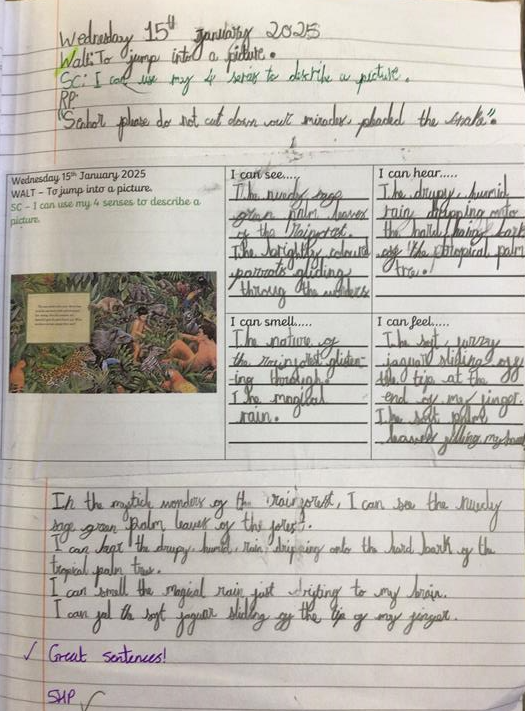 Wednesday 15th January 2025
Walt: To jump into a picture.
SC: I can use my 4 senses to describe a picture.
RP:
"Senhor please do not cut down our miracles, pleaded the snake".
Wednesday 15th January 2025
WALT – To jump into a picture.
SC - I can use my 4 senses to describe a
picture.
I can see.....
The
sage
green palm leaves
of the rainforest.
The brightly coloured
parrots gliding
throug the wonders
I can hear.....
The drupy humid
rain dripping onto
the hard bark
of the tropical palm
tree.
I can smell.....
The nature of
the rainforest glisten-
ing through.
The magical
rain.
I can feel.....
The soft furry
jaguar sliding off
the tip at the
end of my finger.
The soft palm
leaves my
In the mystick wonders of the rainforest, I can see the
sage green palm leaves of the forest.
I can hear the drupy humid rain dripping onto the hard bark of the
tropical palm tree.
I can smell the magical rain just drifting to my brain.
I can the soft jaguar sliding of the tip of my finger.
Great sentences!
SHP